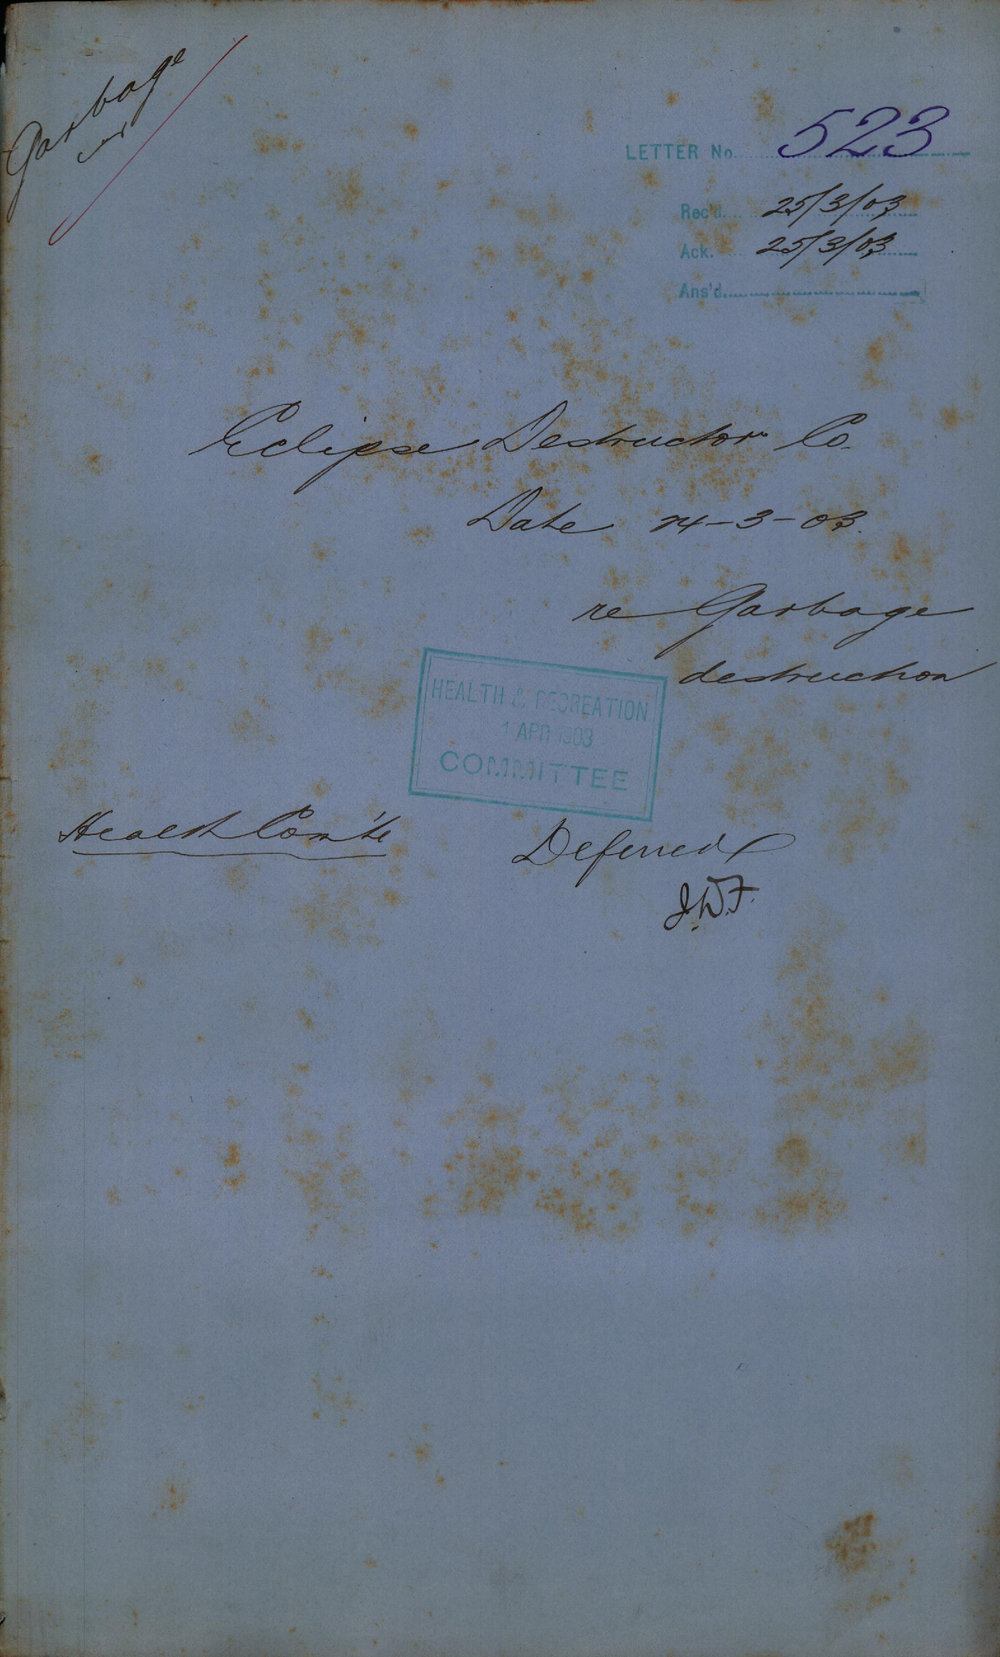 Garbage
LETTER No. 523
Rec'd. 25/3/03
Ack. 25/3/03
Ans'd.
Eclipse Destructor Co.
Date 24-3-03.
re Garbage
destruction
HEALTH & RECREATION
1 APR 1903
COMMITTEE
Health Com'te
Deferred
J.W.F.